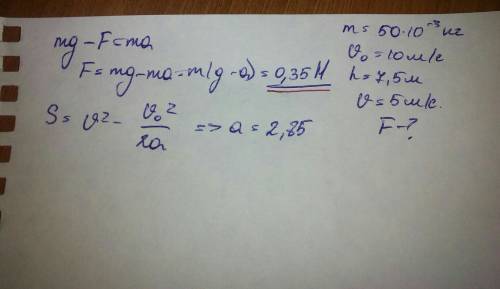 mg - F = ma
F = mg - ma = m(g - a) = 0,35 Н
S = υ² - υ₀²/2a => a = 2,85
m = 50·10⁻³ кг
υ₀ = 10 м/с
h = 7,5 м
υ = 5 м/с.
F - ?